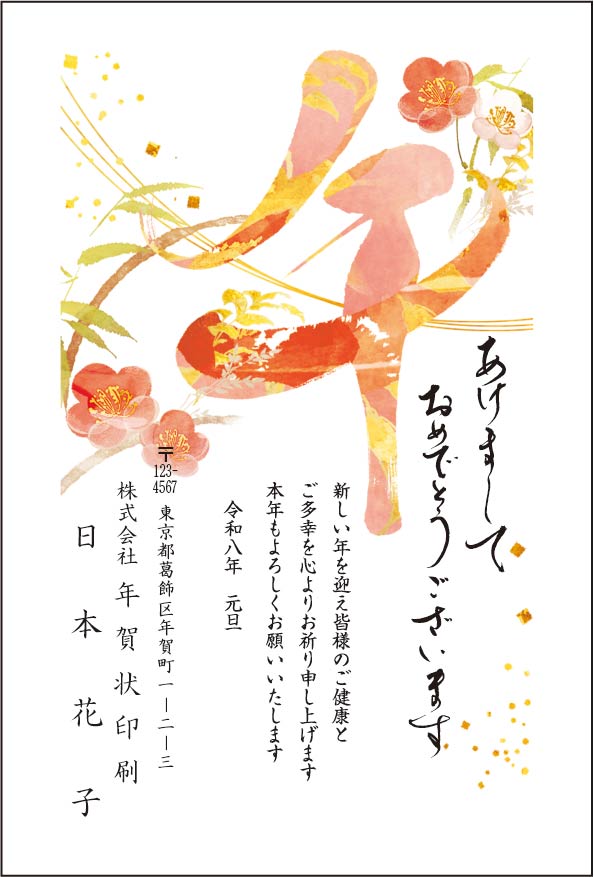 午
あけまして
おめでとうございます
新しい年を迎え皆様のご健康と
ご多幸を心よりお祈り申し上げます
本年もよろしくお願いいたします
令和八年　元旦
〒123-4567
東京都葛飾区年賀町一ー二ー三
株式会社 年賀状印刷
日本花子